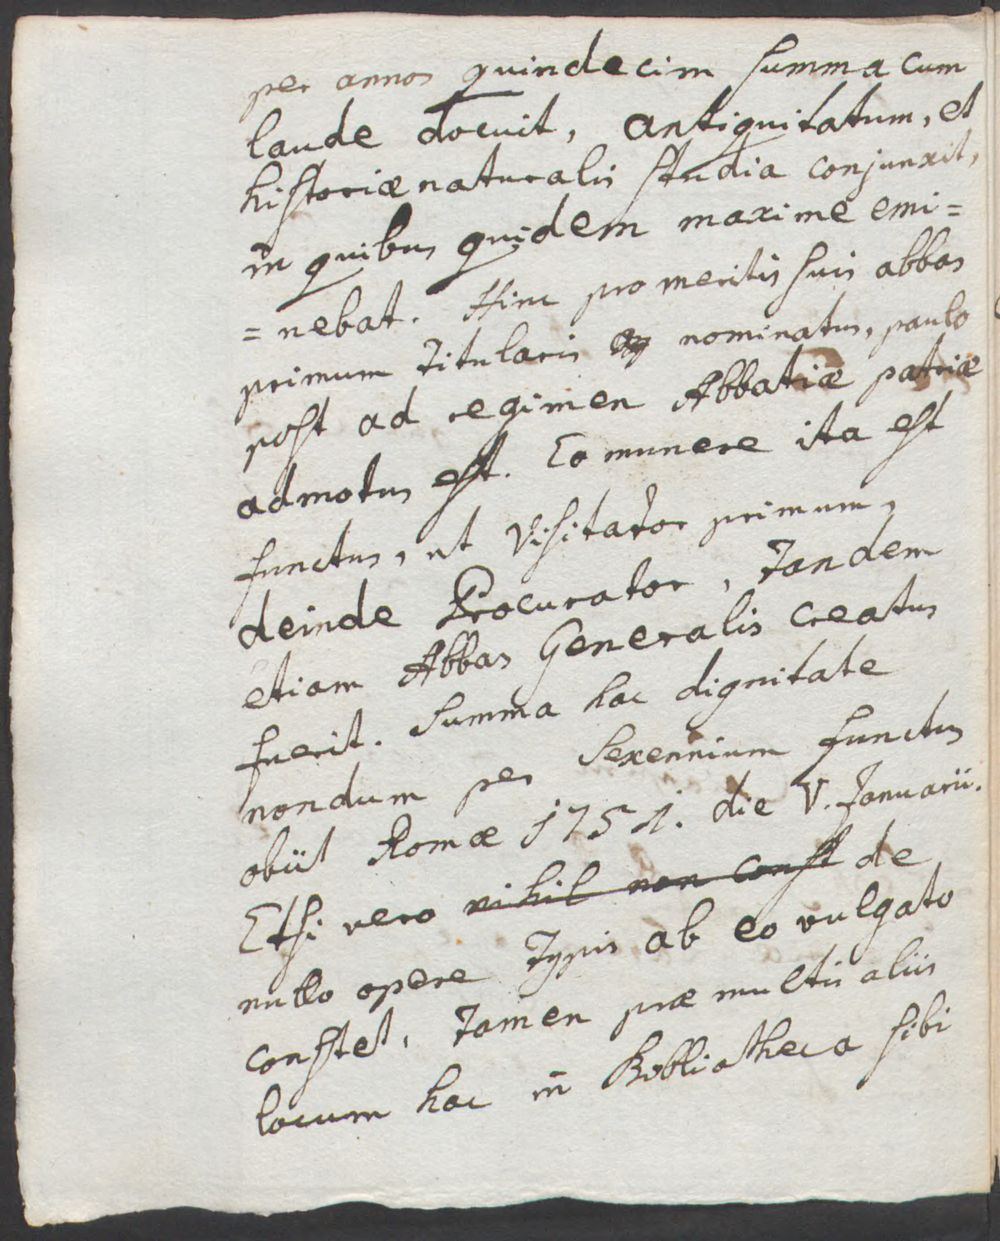 per annos quindecim summa cum
laude docuit, antiquitatum, et
historiæ naturalis studia conjunxit,
in quibus quidem maxime emi=
=nebat. Hinc pro meritis suis abbas
primum titularis nominatus, paulo
post ad regimen Abbatiæ patriæ
admotus est. Eo munere ita est
functus, ut Visitator primum,
deinde Procurator, tandem
etiam Abbas Generalis creatus
fuerit. Summa hac dignitate
nondum per Sexennium functus
obiit Romæ 1751. die V. Januarii.
Etsi vero nihil non const de
nullo opere typis ab eo vulgato
constet, tamen præ multis aliis
locum hac in Bibliotheca sibi